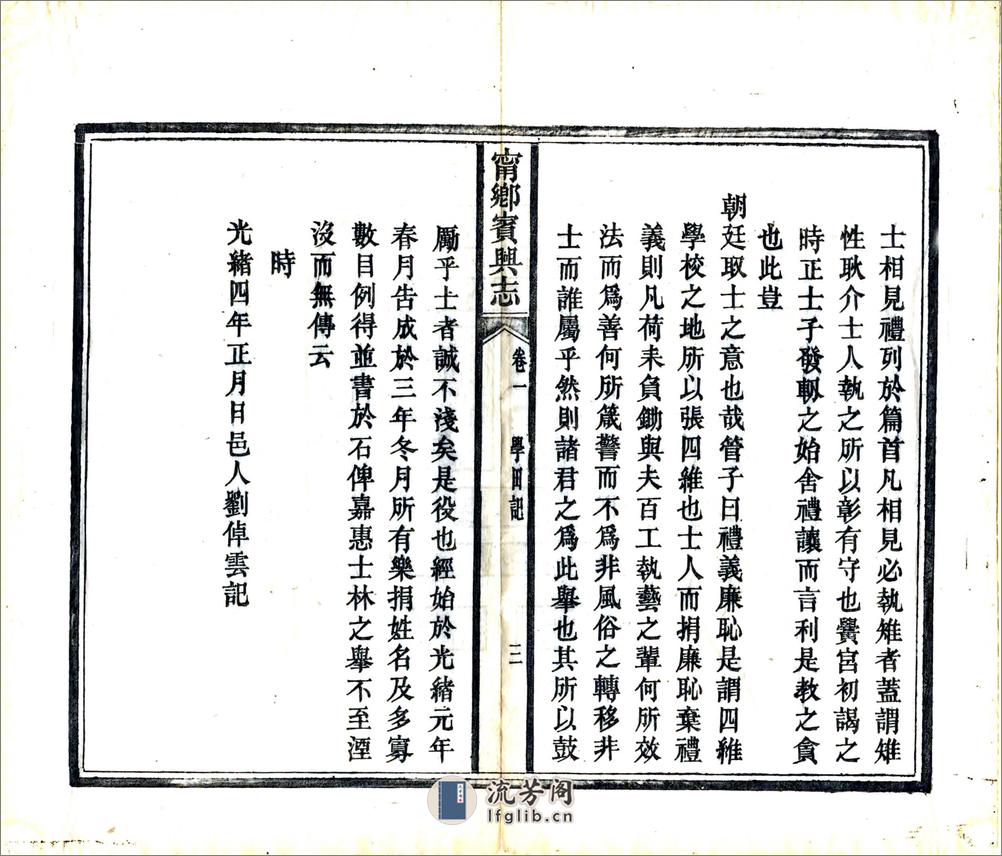 士相見禮列於篇首凡相見必執雉者蓋謂雉
性耿介士人執之所以彰有守也黌宮初謁之
時正士子發軔之始舍禮讓而言利是教之貪
也此豈
朝廷取士之意也哉管子曰禮義廉恥是謂四維
學校之地所以張四維也士人而捐廉恥棄禮
義則凡荷耒負鋤與夫百工執藝之輩何所效
法而爲善何所箴警而不爲非風俗之轉移非
士而誰屬乎然則諸君之爲此舉也其所以鼓
甯鄉賓興志
卷一
學田記
三
厲乎士者誠不淺矣是役也經始於光緒元年
春月告成於三年冬月所有樂捐姓名及多寡
數目例得並書於石俾嘉惠士林之舉不至湮
沒而無傳云
時
光緒四年正月日邑人劉倬雲記
流芳阁
lfglib.cn